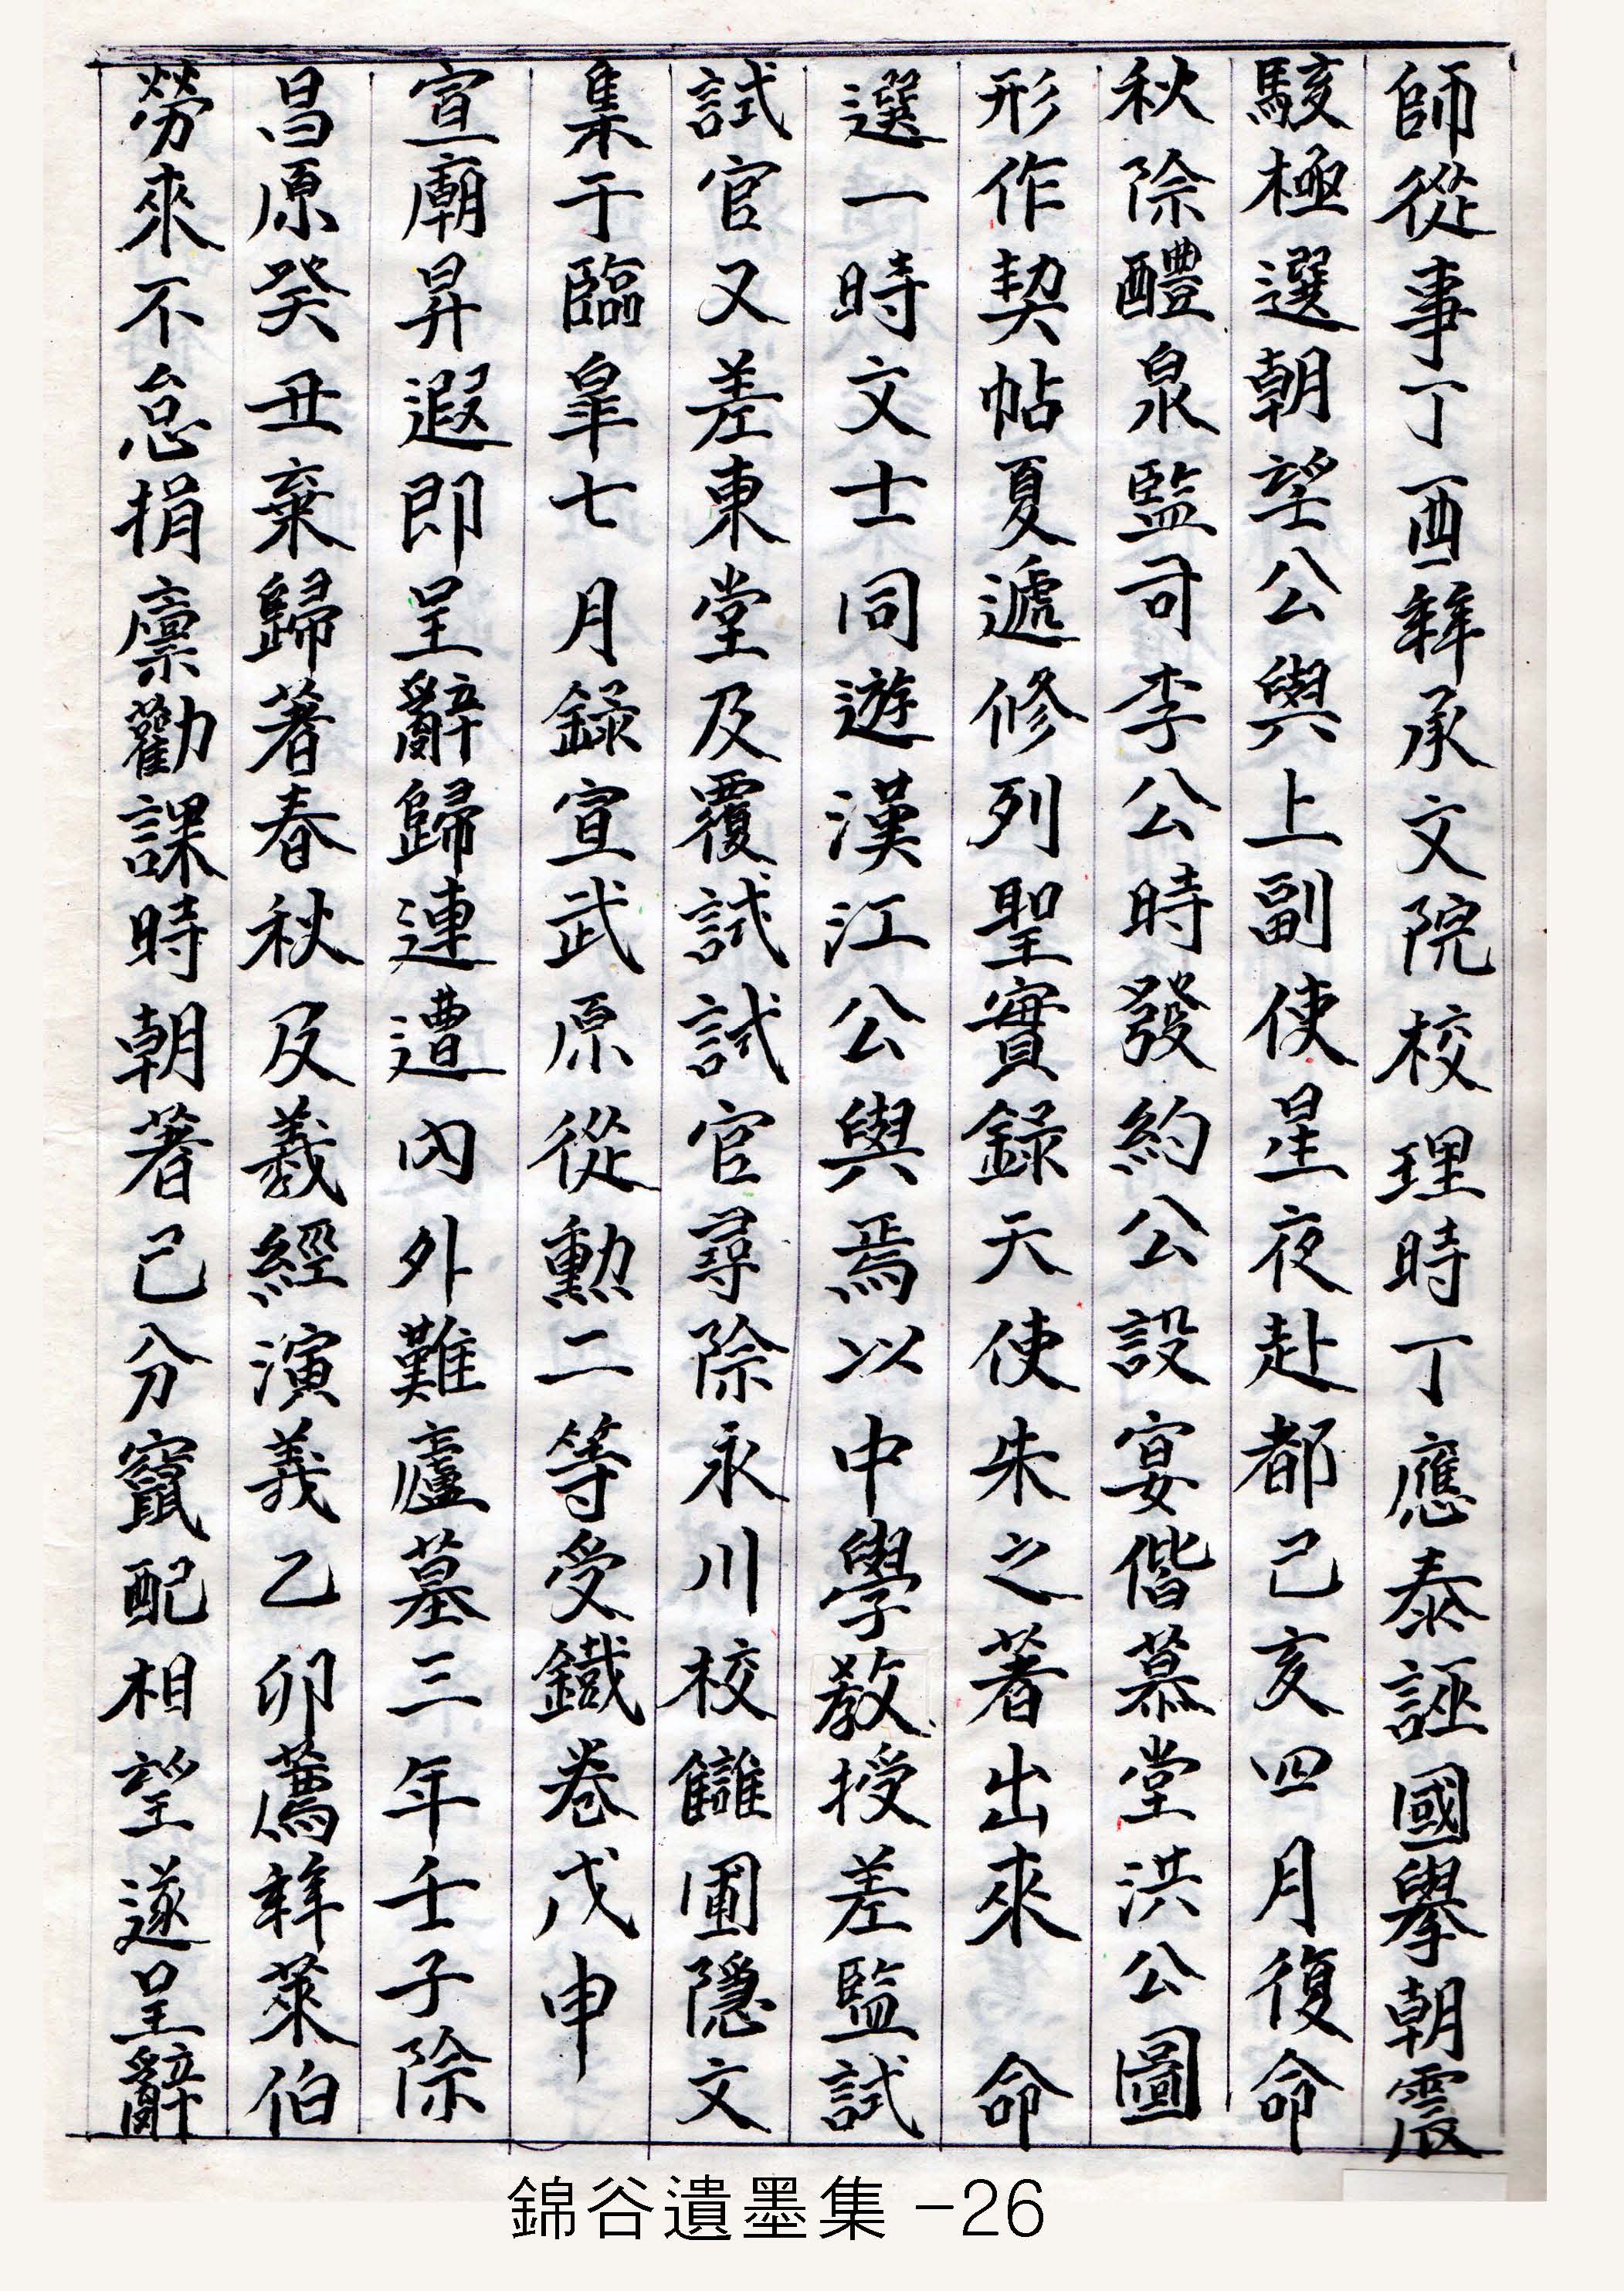 師從事丁酉拜承文院校理時丁應泰誣國擧朝震
駭極選朝望公與上副使星夜赴都己亥四月復命
秋除醴泉監司李公時發約公設宴偕慕堂洪公圖
形作契帖夏遞修列聖實錄天使朱之著出來命
選一時文士同遊漢江公與焉以中學敎授差監試
試官又差東堂及覆試試官尋除永川校讎圃隱文
集于臨皐七月錄宣武原從勳二等受鐵卷戊申
宣廟昇遐卽呈辭歸連遭內外難廬墓三年壬子除
昌原癸丑棄歸著春秋及羲經演義乙卯薦拜萊伯
勞來不怠捐廩勸課時朝著己分竄配相望遂呈辭
錦谷遺墨集 -26